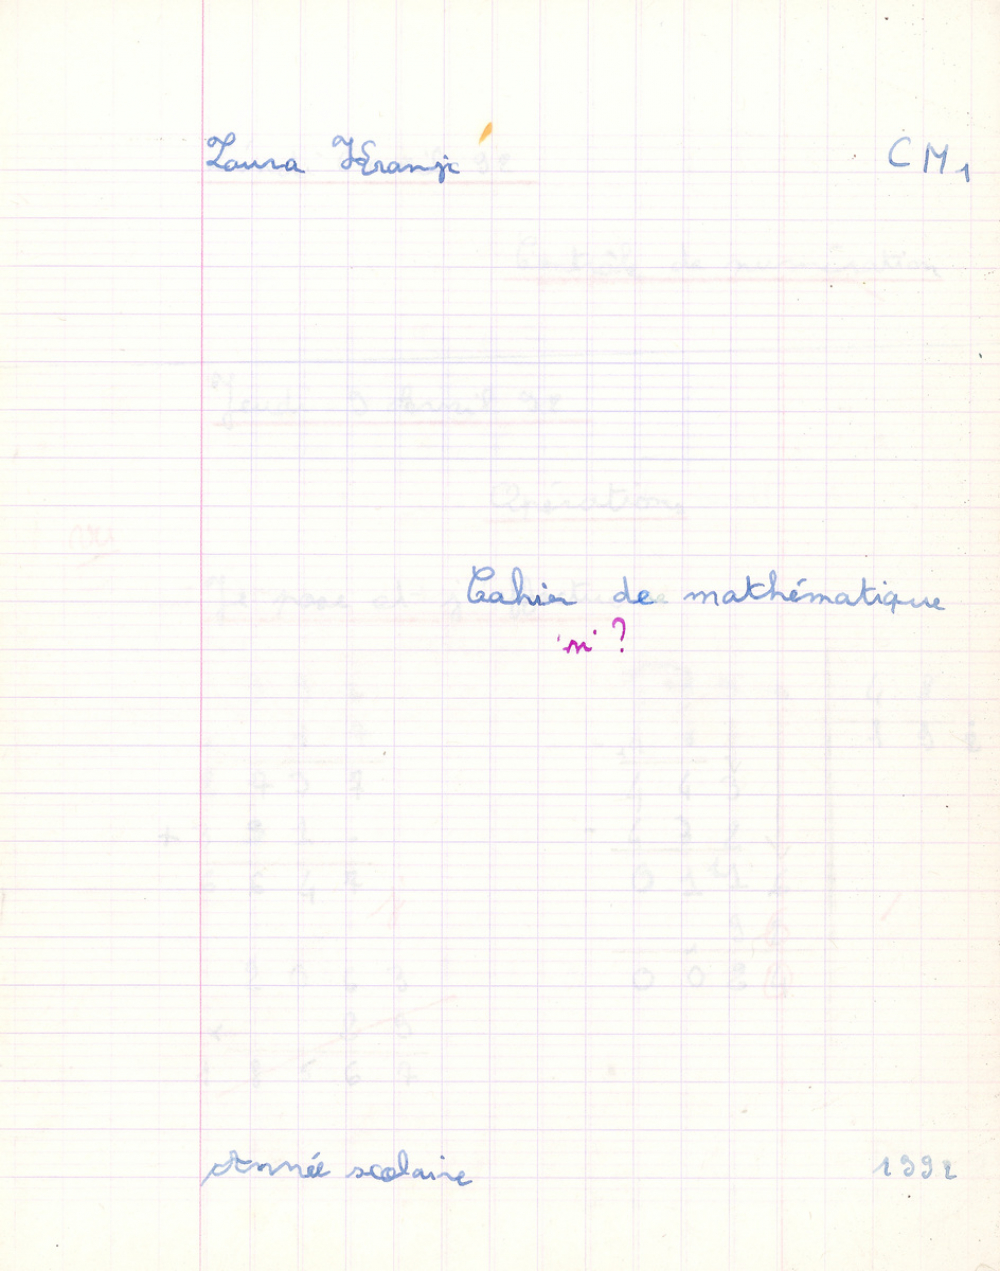 Laura CM1
Cahier de mathématique
"n" ?
Année scolaire 1992